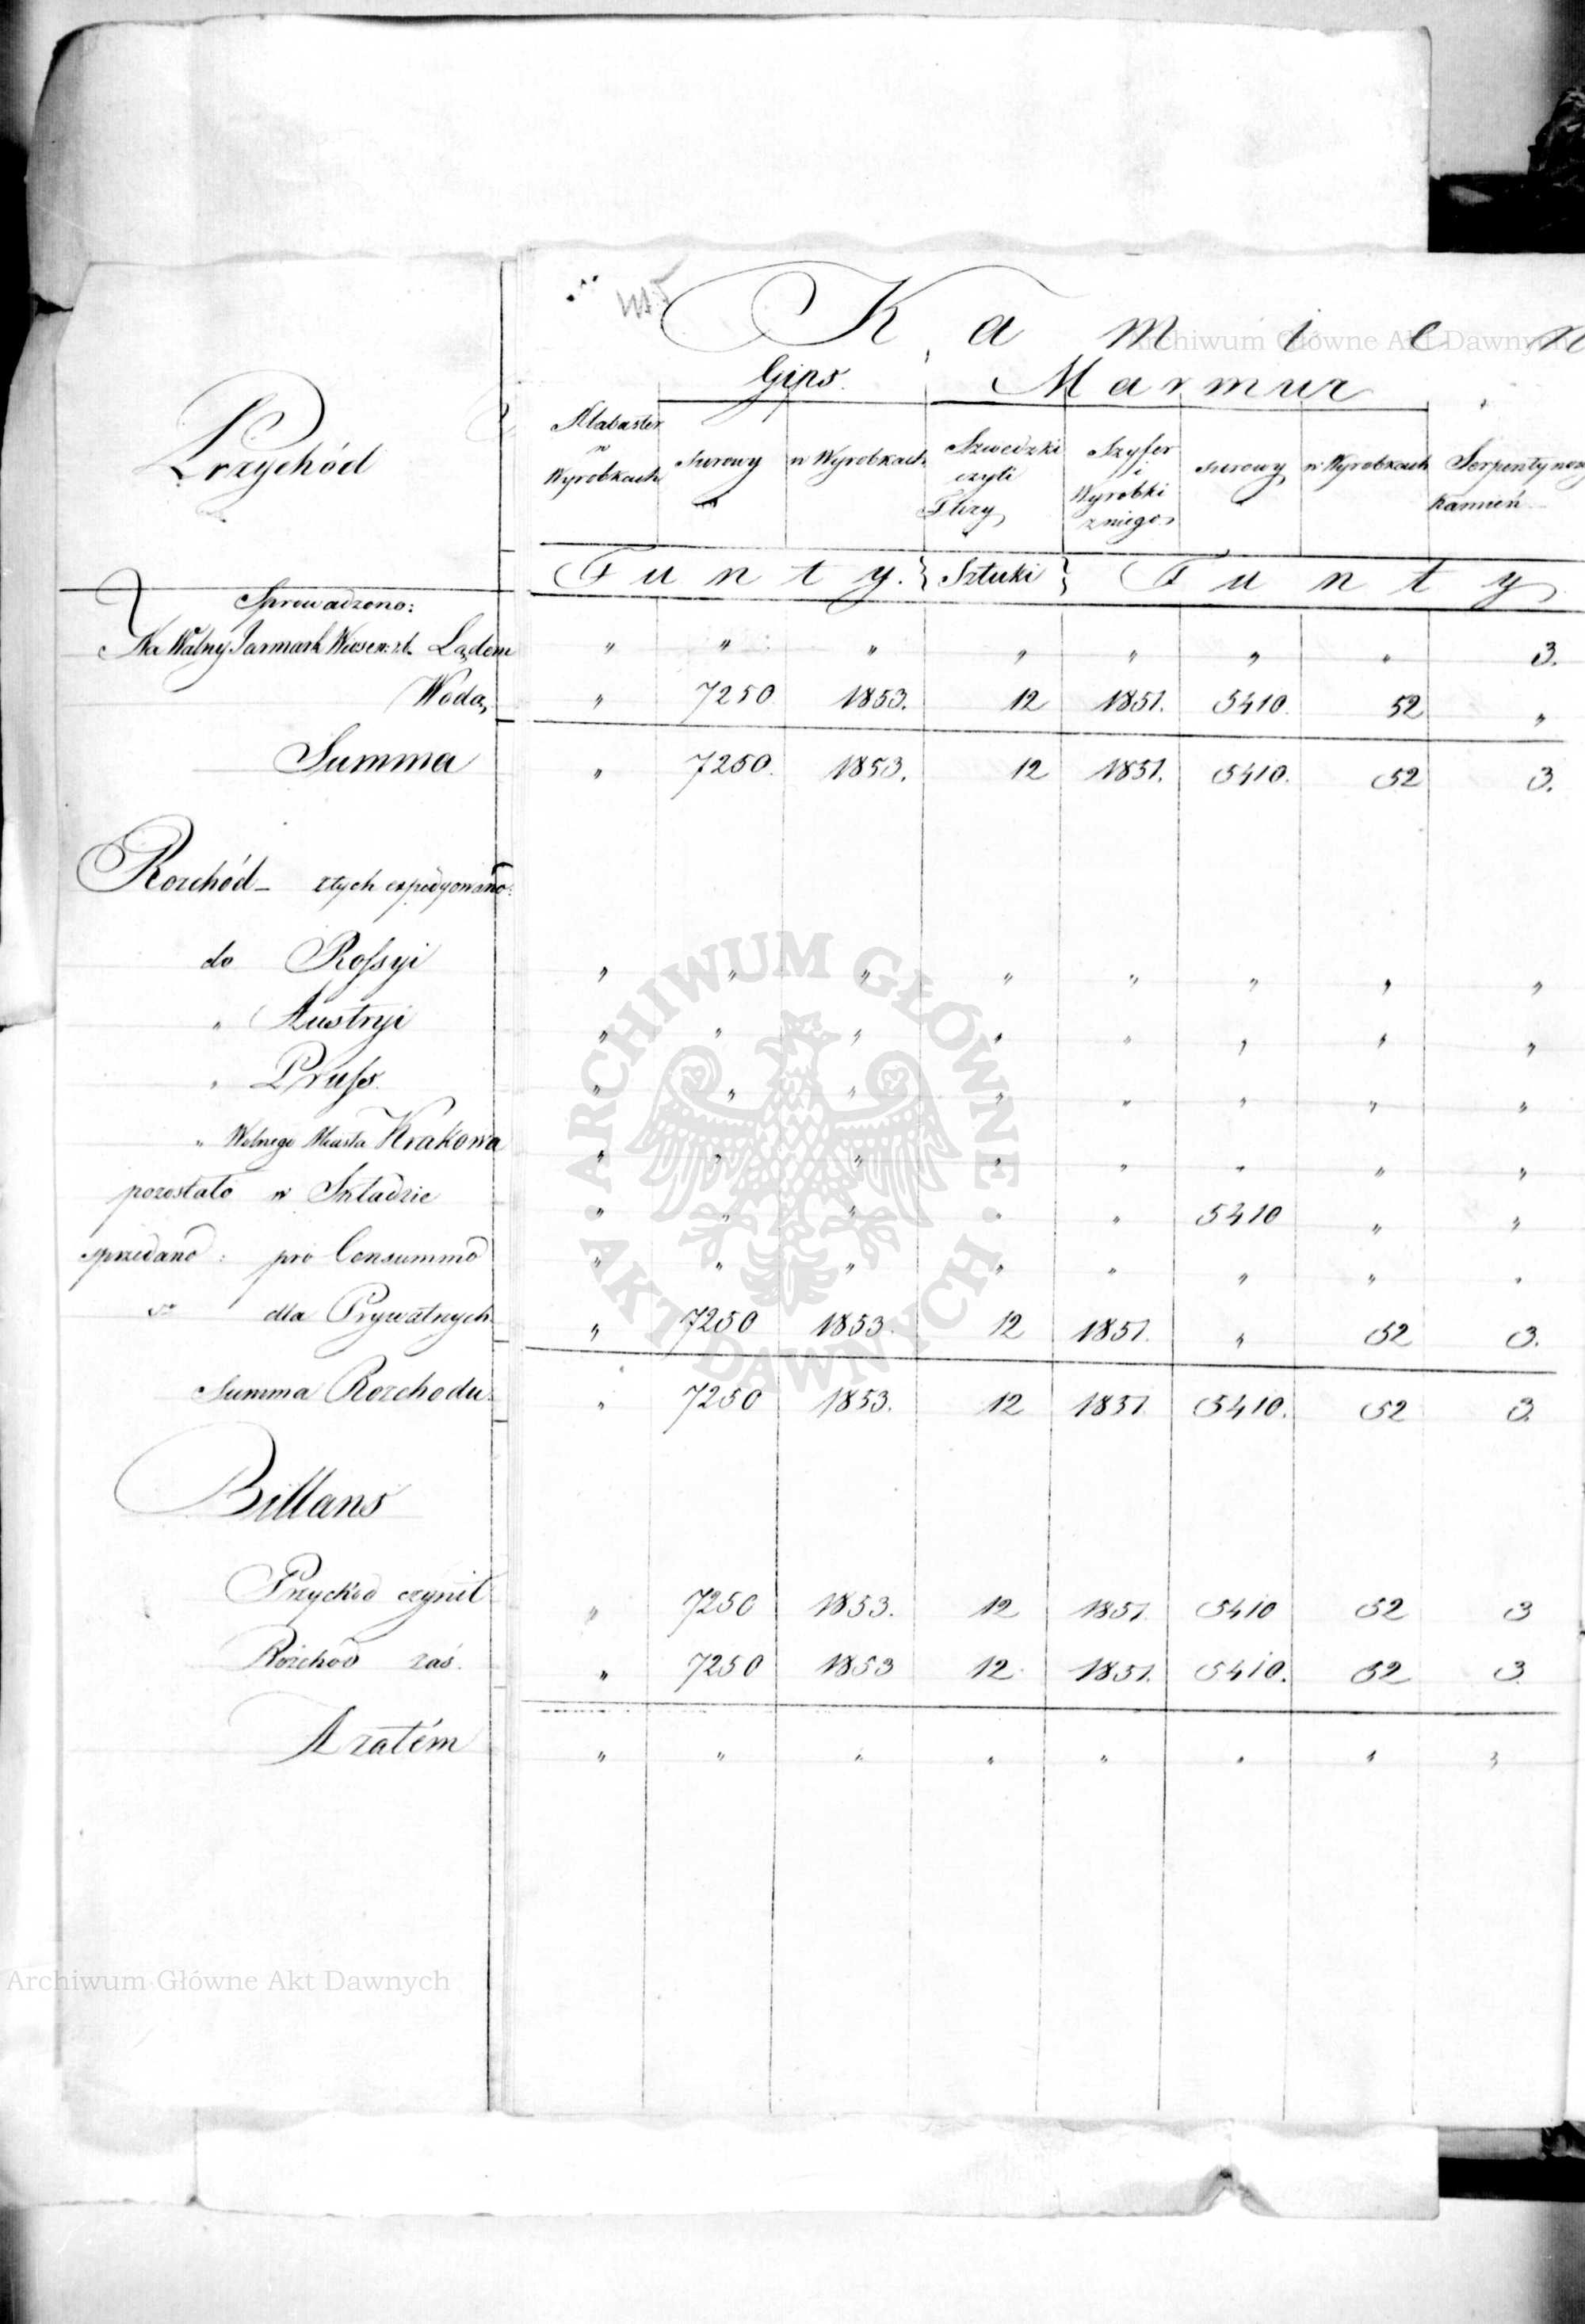 K a m i e n
Gips. Marmur
Przychód
Alabaster w Wyrobkach surowy w Wyrobkach Szwedzki czyli Flizy Szyfer i Wyrobki z niego surowy w Wyrobkach Serpentynowy Kamień
F u n t y. } Sztuki } F u n t y
Sprowadzono:
Na Walny Jarmark Wiosen: rb. Lądem " " " " " " " 3.
Wodą " 7250 1853. 12 1851. 5410. 52 "
Summa " 7250. 1853. 12 1851. 5410. 52 3.
Rozchód – z tych expedyowano:
do Rossyi " " " " " " " "
" Austryi " " " " " " " "
" Pruss " " " " " " " "
" Wolnego Miasta Krakowa " " " " " " " "
pozostało w Składzie " " " " " 5410 " "
sprzedano: pro Consummo " " " " " " " "
do dla Prywatnych " 7250 1853. 12 1851. " 52 3.
Summa Rozchodu. " 7250 1853. 12 1851 5410. 52 3.
Billans
Przychód czynił " 7250 1853. 12 1851. 5410 52 3
Rozchód zaś. " 7250 1853 12. 1851. 5410. 52 3
A zatém " " " " " " " "
Archiwum Główne Akt Dawnych
Archiwum Główne Akt Dawnych
ARCHIWUM GŁÓWNE · AKT DAWNYCH ·